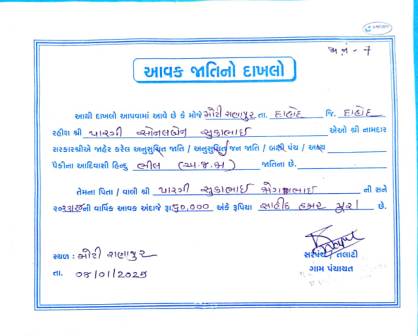 અ.નં - 7
આવક જાતિનો દાખલો
આથી દાખલો આપવામાં આવે છે કે મોજે મોટી રાણાપુર તા. દાહોદ જિ. દાહોદ
રહીશ શ્રી પારગી સોનલબેન સુકાભાઈ એઓ શ્રી નામદાર
સરકારશ્રીએ જાહેર કરેલ અનુસુચિત જાતિ / અનુસુચિત જન જાતિ / બક્ષી પંચ / અન્ય
પૈકીના આદિવાસી હિન્દુ ભીલ (અ.જ.જા) જાતિના છે.
તેમના પિતા / વાલી શ્રી પારગી સુકાભાઈ ની સને
ની વાર્ષિક આવક અંદાજે રૂા. 60,000 અંકે રૂપિયા સાહીઠ હજાર પુરા છે.
સ્થળ : મોટી રાણાપુર
તા. 04/01/2025
સરપંચ / તલાટી
ગામ પંચાયત